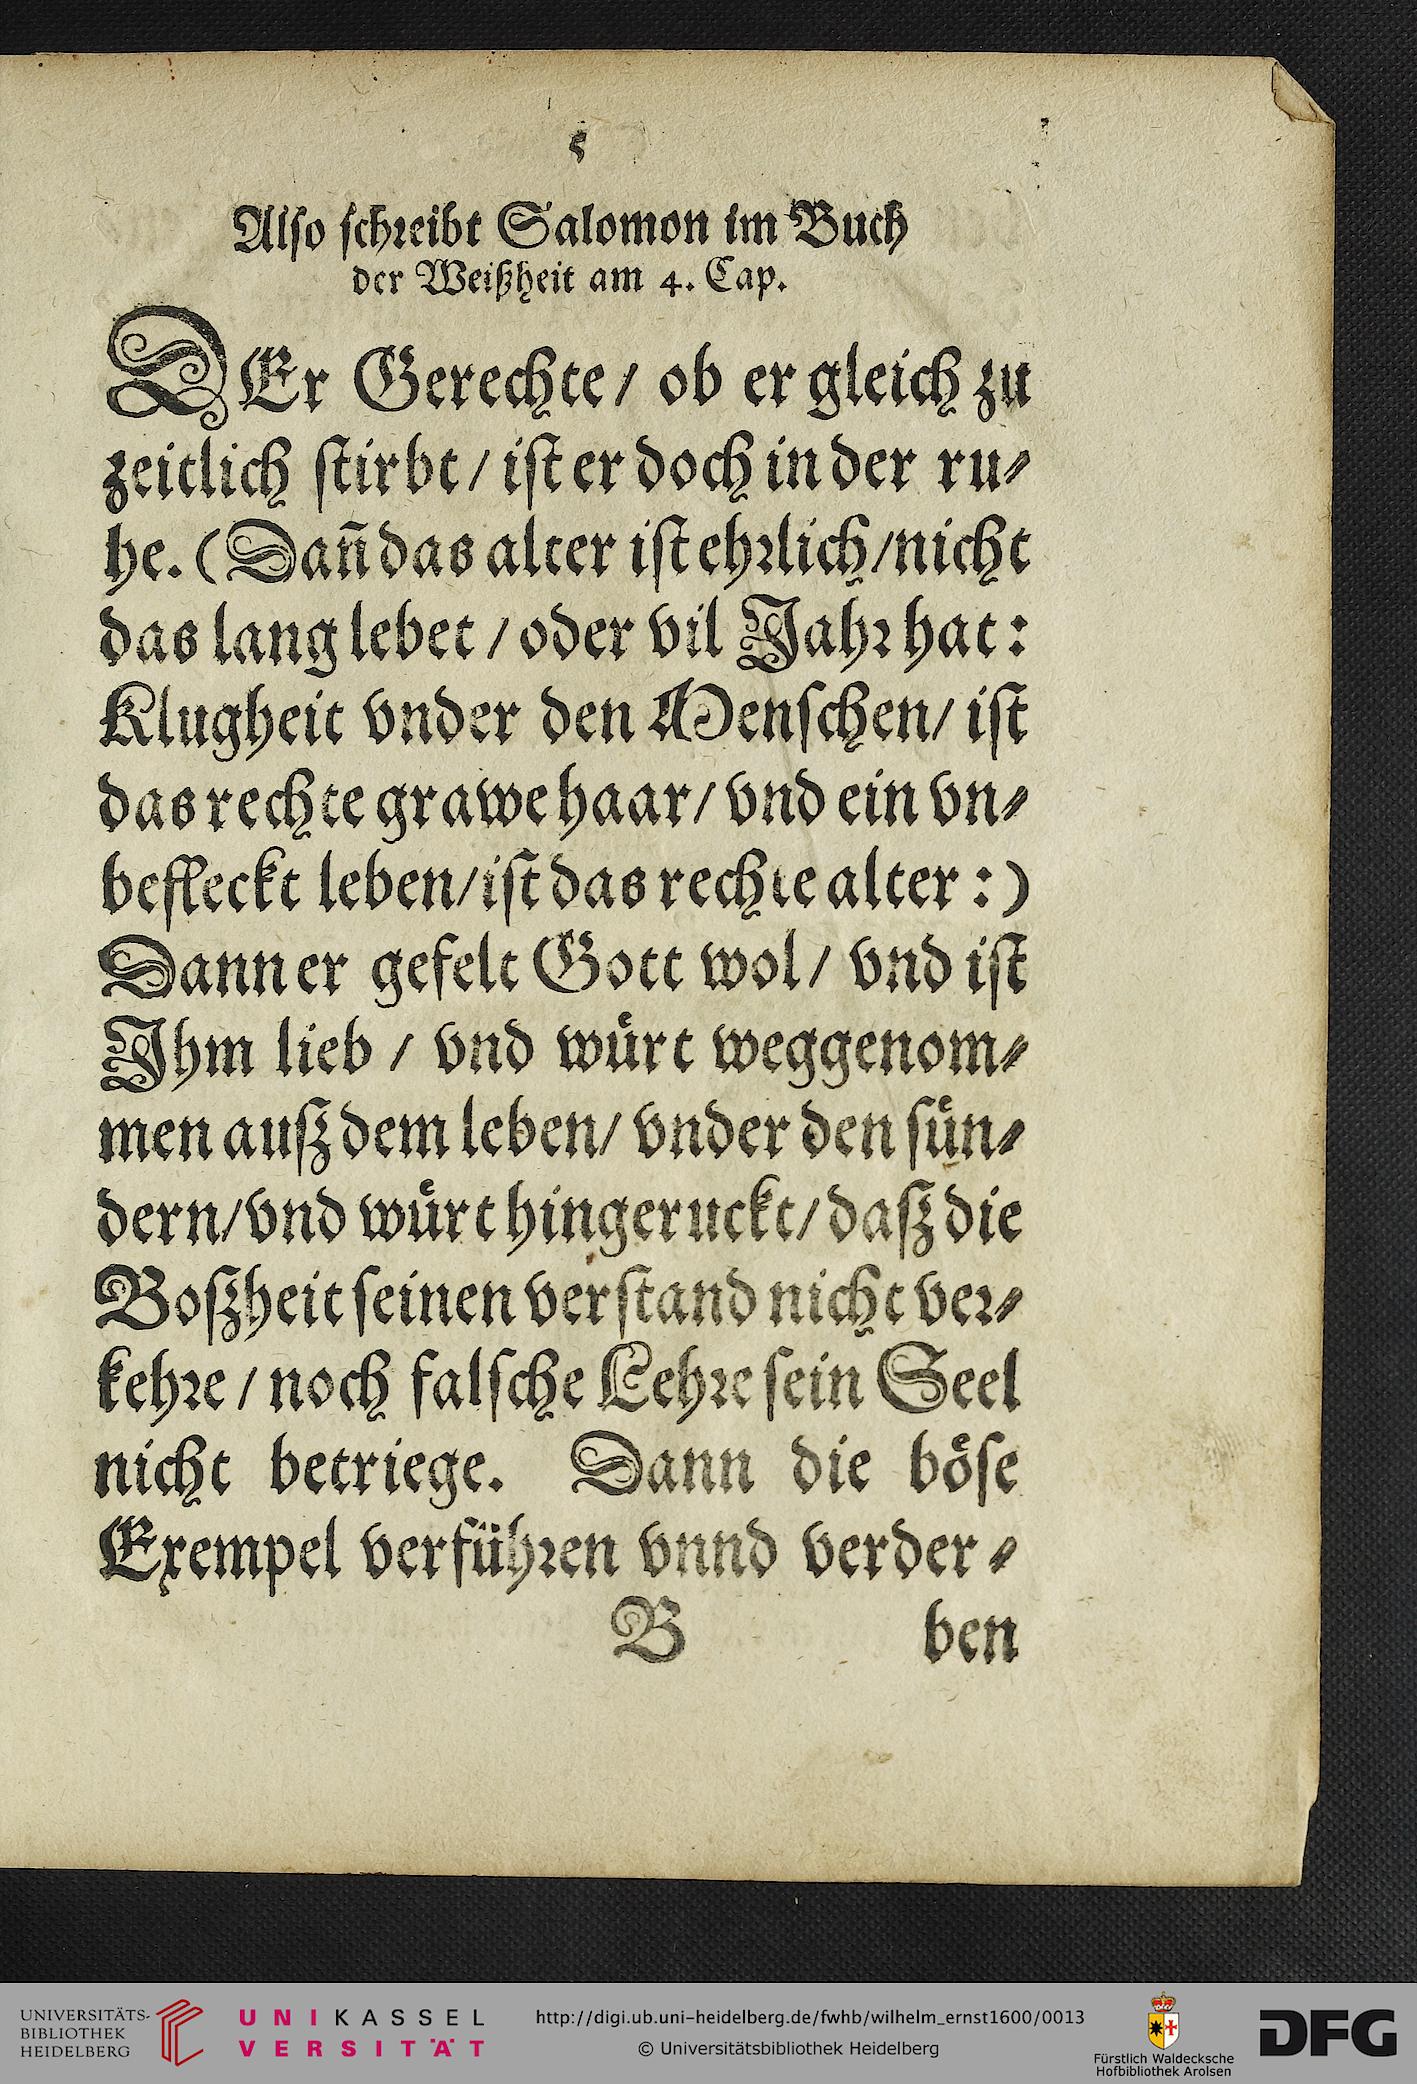 5
Also schreibt Salomon im Buch
der Weißheit am 4. Cap.
DEr Gerechte / ob er gleich zu
zeitlich stirbt / ist er doch in der ru⸗
he. (Dañ das alter ist ehrlich / nicht
das lang lebet / oder vil Jahr hat:
Klugheit vnder den Menschen / ist
das rechte grawe haar / vnd ein vn⸗
befleckt leben / ist das rechte alter:)
Dann er gefelt Gott wol / vnd ist
Ihm lieb / vnd wuͤrt weggenom⸗
men außdem leben / vnder den suͤn⸗
dern / vnd wuͤrt hingeruckt / daß die
Boßheit seinen verstand nicht ver⸗
kehre / noch falsche Lehre sein Seel
nicht betriege. Dann die boͤse
Exempel verführen vnnd verder⸗
B ben
UNIVERSITÄTS-
BIBLIOTHEK
HEIDELBERG
UNIKASSEL
VERSITÄT
http://digi.ub.uni-heidelberg.de/fwhb/wilhelm_ernst1600/0013
© Universitätsbibliothek Heidelberg
Fürstlich Waldecksche
Hofbibliothek Arolsen
DFG